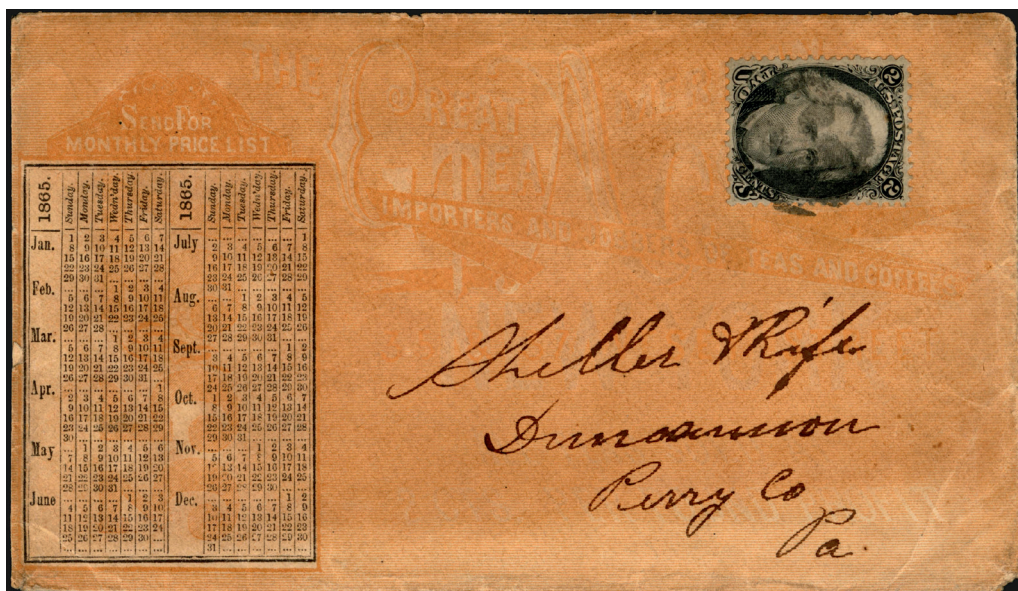 THE
GREAT
TEA
IMPORTERS AND
TEAS AND COFFEES
SEND FOR
MONTHLY PRICE LIST
U.S. POSTAGE
2 2
1865.
Sunday. Monday. Tuesday. Wedn'day. Thursday. Friday. Saturday.
Jan. 1 2 3 4 5 6 7
8 9 10 11 12 13 14
15 16 17 18 19 20 21
22 23 24 25 26 27 28
29 30 31 ... ... ... ...
Feb. ... ... ... 1 2 3 4
5 6 7 8 9 10 11
12 13 14 15 16 17 18
19 20 21 22 23 24 25
26 27 28 ... ... ... ...
Mar. ... ... ... 1 2 3 4
5 6 7 8 9 10 11
12 13 14 15 16 17 18
19 20 21 22 23 24 25
26 27 28 29 30 31 ...
Apr. ... ... ... ... ... ... 1
2 3 4 5 6 7 8
9 10 11 12 13 14 15
16 17 18 19 20 21 22
23 24 25 26 27 28 29
30 ... ... ... ... ... ...
May ... 1 2 3 4 5 6
7 8 9 10 11 12 13
14 15 16 17 18 19 20
21 22 23 24 25 26 27
28 29 30 31 ... ... ...
June ... ... ... ... 1 2 3
4 5 6 7 8 9 10
11 12 13 14 15 16 17
18 19 20 21 22 23 24
25 26 27 28 29 30 ...
1865.
Sunday. Monday. Tuesday. Wedn'day. Thursday. Friday. Saturday.
July ... ... ... ... ... ... 1
2 3 4 5 6 7 8
9 10 11 12 13 14 15
16 17 18 19 20 21 22
23 24 25 26 27 28 29
30 31 ... ... ... ... ...
Aug. ... ... 1 2 3 4 5
6 7 8 9 10 11 12
13 14 15 16 17 18 19
20 21 22 23 24 25 26
27 28 29 30 31 ... ...
Sept. ... ... ... ... ... 1 2
3 4 5 6 7 8 9
10 11 12 13 14 15 16
17 18 19 20 21 22 23
24 25 26 27 28 29 30
Oct. 1 2 3 4 5 6 7
8 9 10 11 12 13 14
15 16 17 18 19 20 21
22 23 24 25 26 27 28
29 30 31 ... ... ... ...
Nov. ... ... ... 1 2 3 4
5 6 7 8 9 10 11
12 13 14 15 16 17 18
19 20 21 22 23 24 25
26 27 28 29 30 ... ...
Dec. ... ... ... ... ... 1 2
3 4 5 6 7 8 9
10 11 12 13 14 15 16
17 18 19 20 21 22 23
24 25 26 27 28 29 30
31 ... ... ... ... ... ...
Sheller & Rife
Duncannon
Perry Co
Pa.